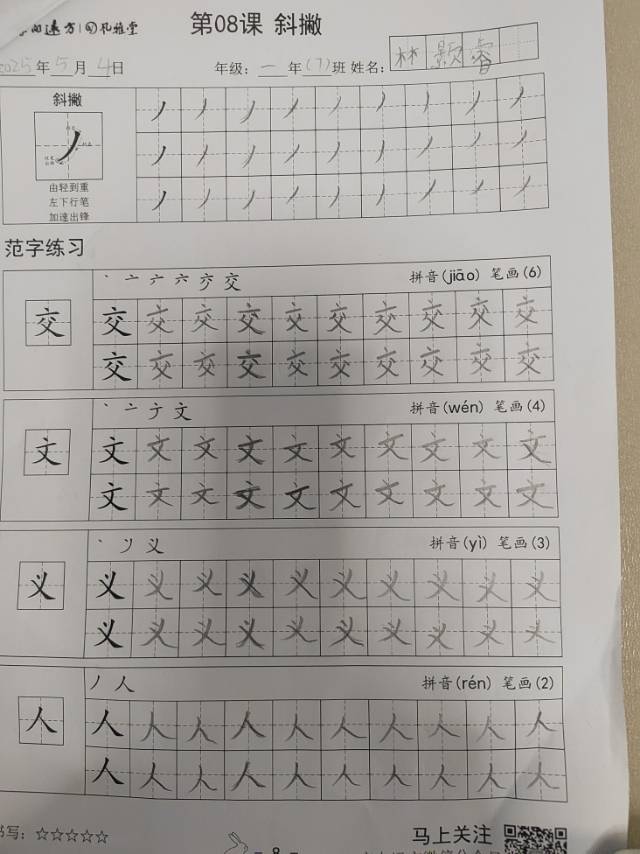 远方 | 孔雅堂 第08课 斜撇
2025年5月4日 年级：一年(7)班 姓名：林颢睿
斜撇
由轻到重
左下行笔
加速出锋
范字练习
丶 亠 亠 六 ク 交 拼音(jiāo) 笔画(6)
交 交 交 交 交 交 交 交 交 交 交
交 交 交 交 交 交 交 交 交 交
丶 亠 ナ 文 拼音(wén) 笔画(4)
文 文 文 文 文 文 文 文 文 文 文
文 文 文 文 文 文 文 文 文 文
丶 丷 义 拼音(yì) 笔画(3)
义 义 义 义 义 义 义 义 义 义 义
义 义 义 义 义 义 义 义 义 义
丿 人 拼音(rén) 笔画(2)
人 人 人 人 人 人 人 人 人 人 人
人 人 人 人 人 人 人 人 人 人
书写：☆☆☆☆☆ - 8 - 马上关注